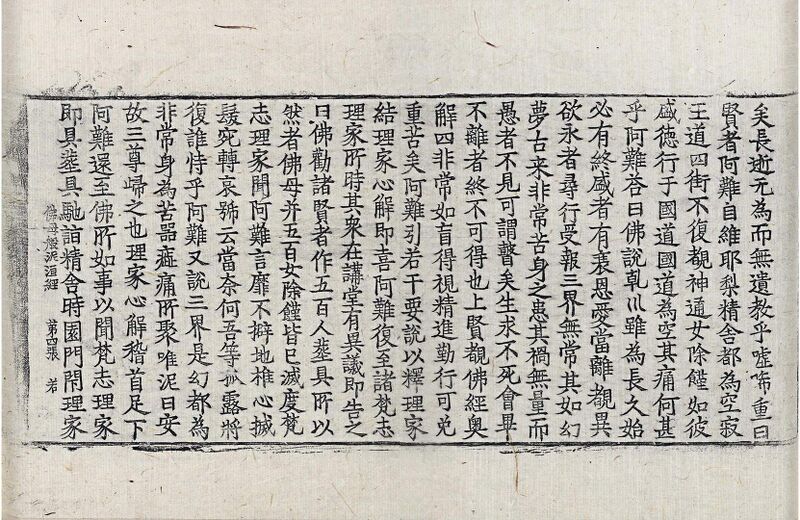 矣長逝无為而無遺教乎噓唏重曰
賢者阿難自維耶梨精舍都為空寂
王道四街不復覩神通女除饉如彼
盛德行于國道國道為空其痛何甚
乎阿難荅曰佛說乹川雖為長久始
必有終盛者有衰恩愛當離覩異
欲永者尋行受報三界無常其如幻
夢古来非常苦身之患其禍無量而
愚者不見可謂瞽矣生求不死會冀
不離者終不可得也上賢覩佛經奧
解四非常如盲得視精進勤行可免
重苦矣阿難引若干要說以釋理家
結理家心解即喜阿難復至諸梵志
理家所時其衆在講堂有異議即告之
曰佛勸諸賢者作五百人塟具所以
然者佛母并五百女除饉皆已滅度梵
志理家聞阿難言靡不擗地椎心搣
髮宛轉哀號云當奈何吾等孤露將
復誰恃乎阿難又說三界是幻都為
非常身為苦器痛所聚唯泥曰安
故三尊歸之也理家心解稽首足下
阿難還至佛所如事以聞梵志理家
即具塟具馳詣精舍時園門閇理家
佛母般泥洹經 第四張 若